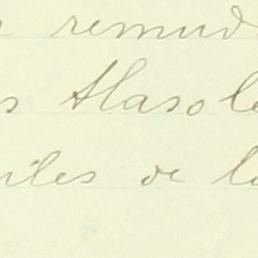 remud
s Alasole
iles de la